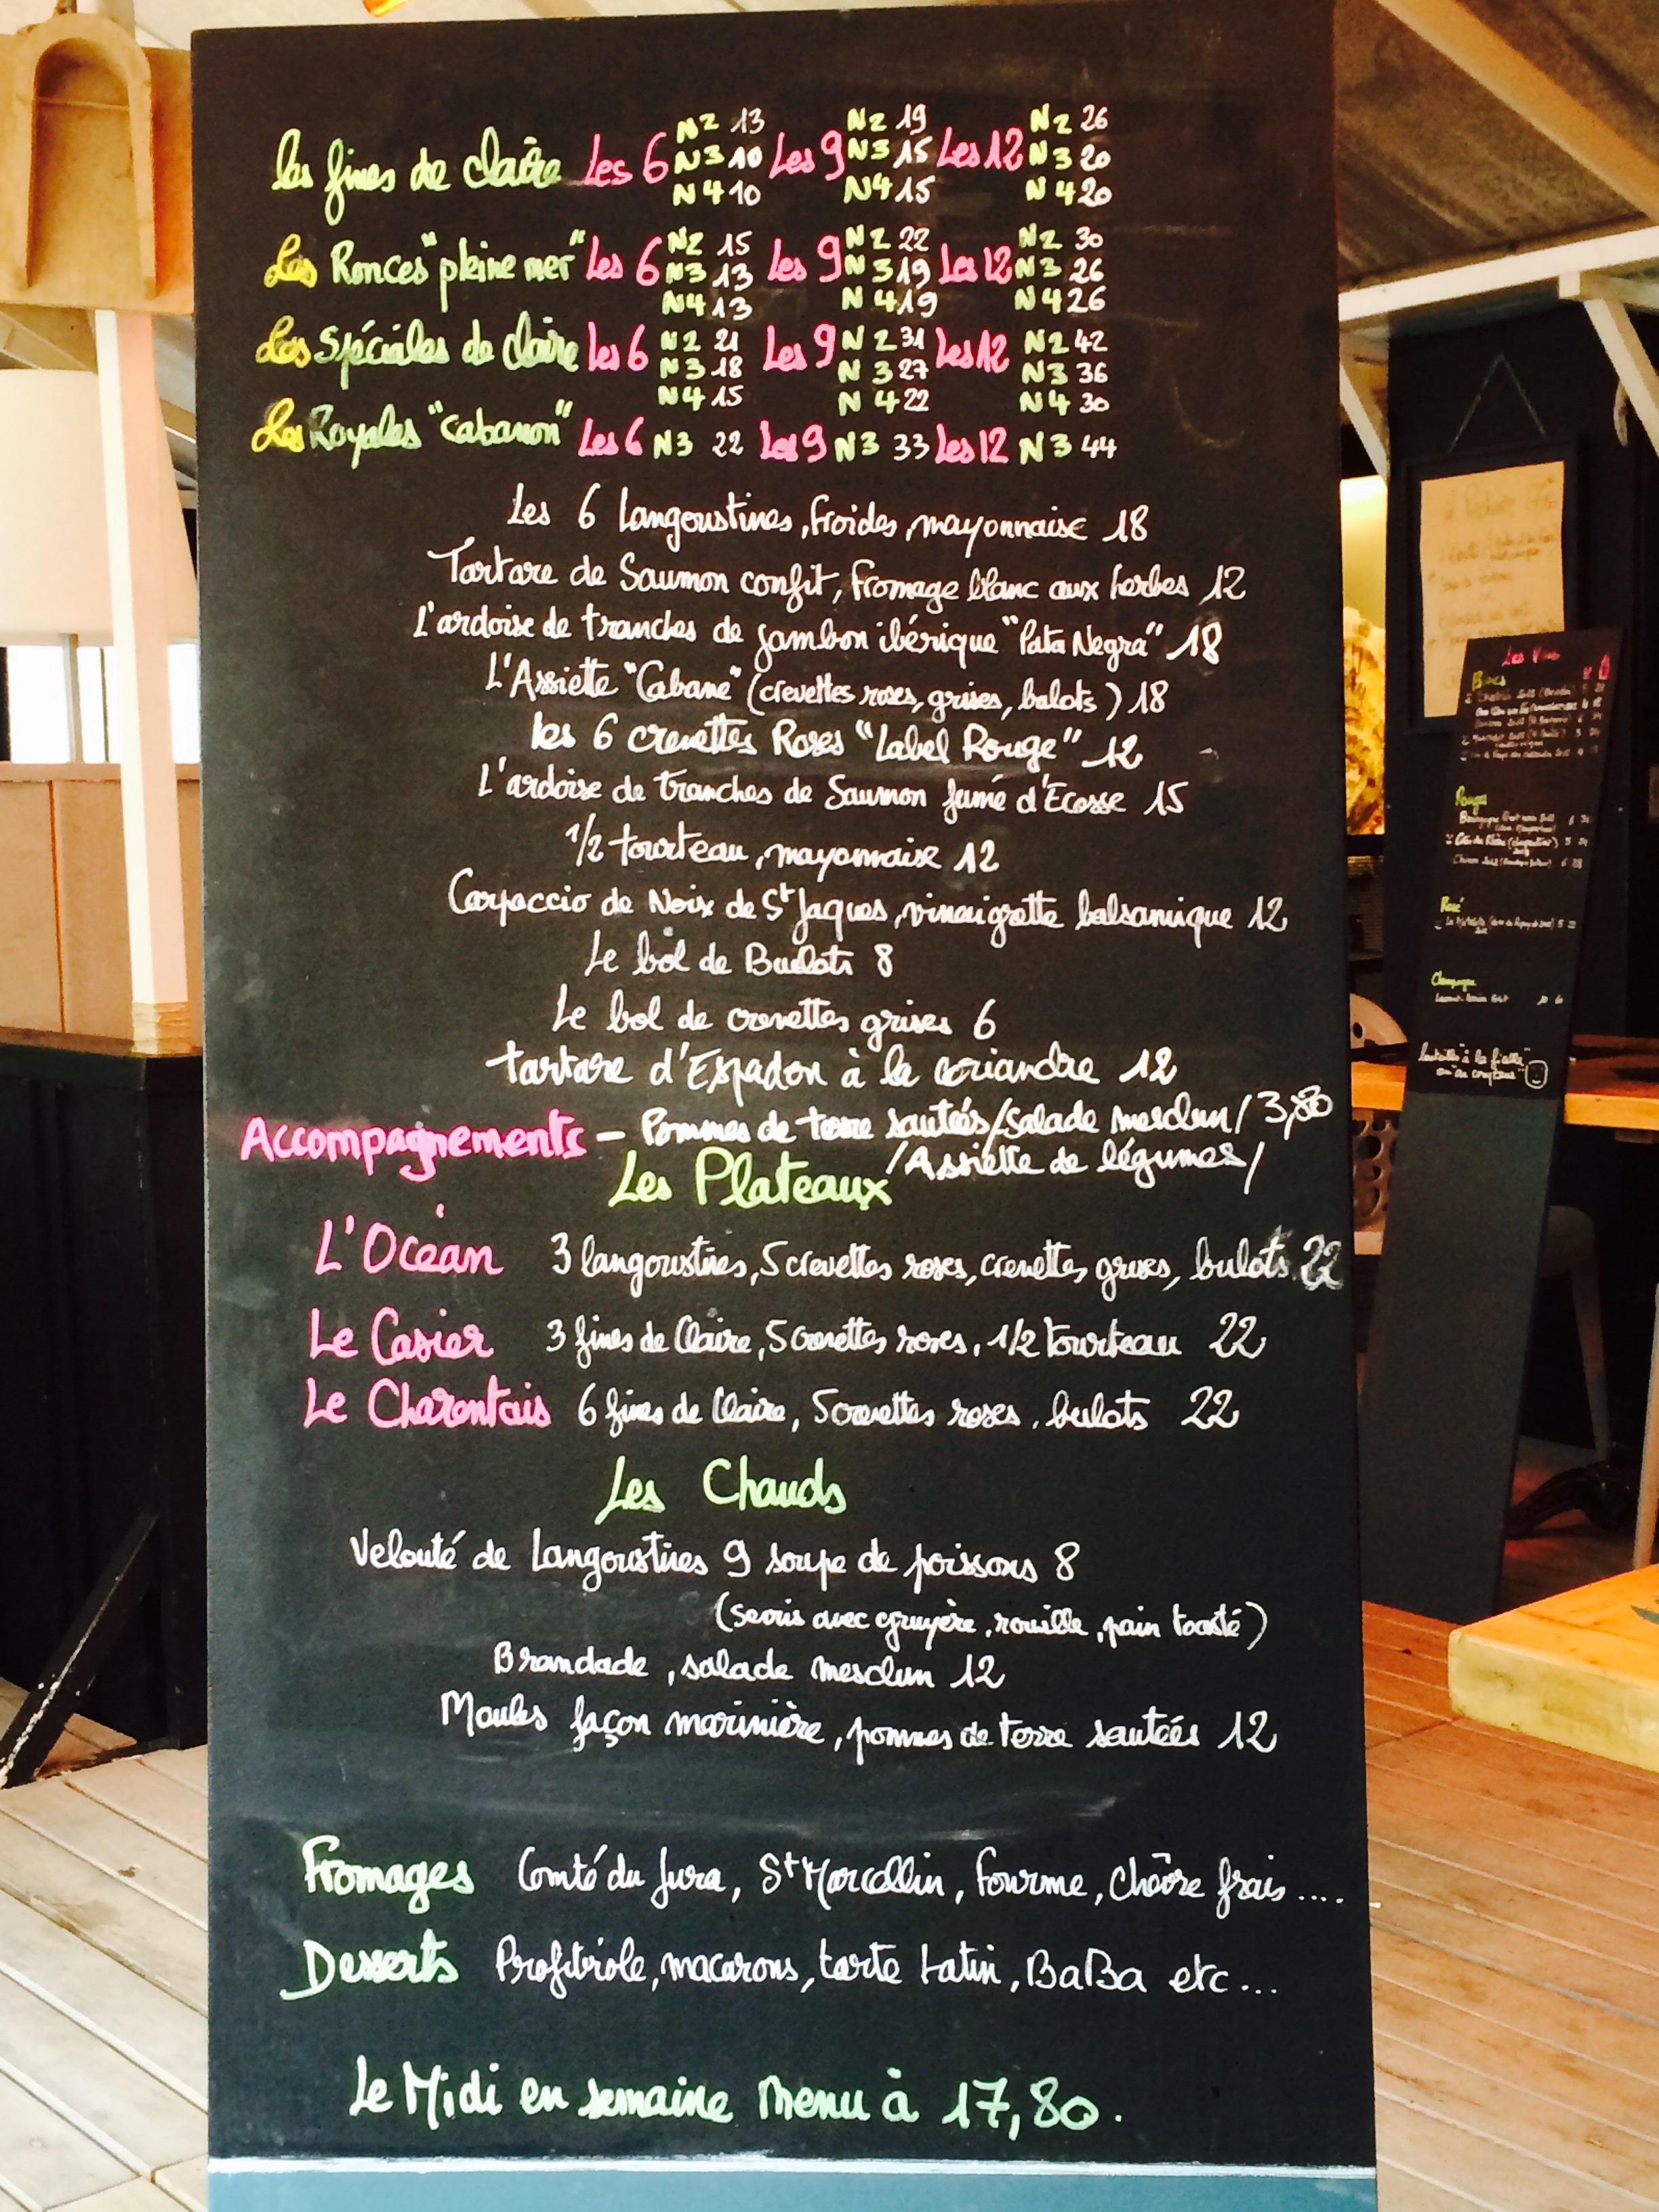 N2 13 N2 19 N2 26
les fines de claire Les 6 N3 10 Les 9 N3 15 Les 12 N3 20
N4 10 N4 15 N4 20
N2 15 N2 22 N2 30
Les Ronces "pleine mer" Les 6 N3 13 Les 9 N3 19 Les 12 N3 26
N4 13 N4 19 N4 26
Les Spéciales de claire Les 6 N2 21 Les 9 N2 31 Les 12 N2 42
N3 18 N3 27 N3 36
N4 15 N4 22 N4 30
Les Royales "Cabanon" Les 6 N3 22 Les 9 N3 33 Les 12 N3 44
Les 6 Langoustines, froides, mayonnaise 18
Tartare de Saumon confit, fromage blanc aux herbes 12
L'ardoise de tranches de jambon ibérique "Pata Negra" 18
L'Assiette "Cabane" (crevettes roses, grises, bulots) 18
les 6 crevettes Roses "Label Rouge" 12
L'ardoise de tranches de Saumon fumé d'Ecosse 15
1/2 tourteau, mayonnaise 12
Carpaccio de Noix de St Jaques, vinaigrette balsamique 12
Le bol de Bulots 8
Le bol de crevettes grises 6
tartare d'Espadon à la coriandre 12
Accompagnements - Pommes de terre sautées/Salade mesclun/ 3,80
/Assiette de légumes/
Les Plateaux
L'Océan 3 langoustines, 5 crevettes roses, crevettes grises, bulots 22
Le Casier 3 fines de Claire, 5 crevettes roses, 1/2 tourteau 22
Le Charentais 6 fines de Claire, 5 crevettes roses, bulots 22
Les Chauds
Velouté de Langoustines 9 soupe de poissons 8
(servis avec gruyère, rouille, pain toasté)
Brandade, salade mesclun 12
Moules façon marinière, pommes de terre sautées 12
Fromages Comté du Jura, St Marcellin, Fourme, Chèvre frais ....
Desserts Profitérole, macarons, tarte tatin, BaBa etc...
Le Midi en semaine menu à 17,80.
Les Vins
Blancs
Rouges
Rosé
Champagne